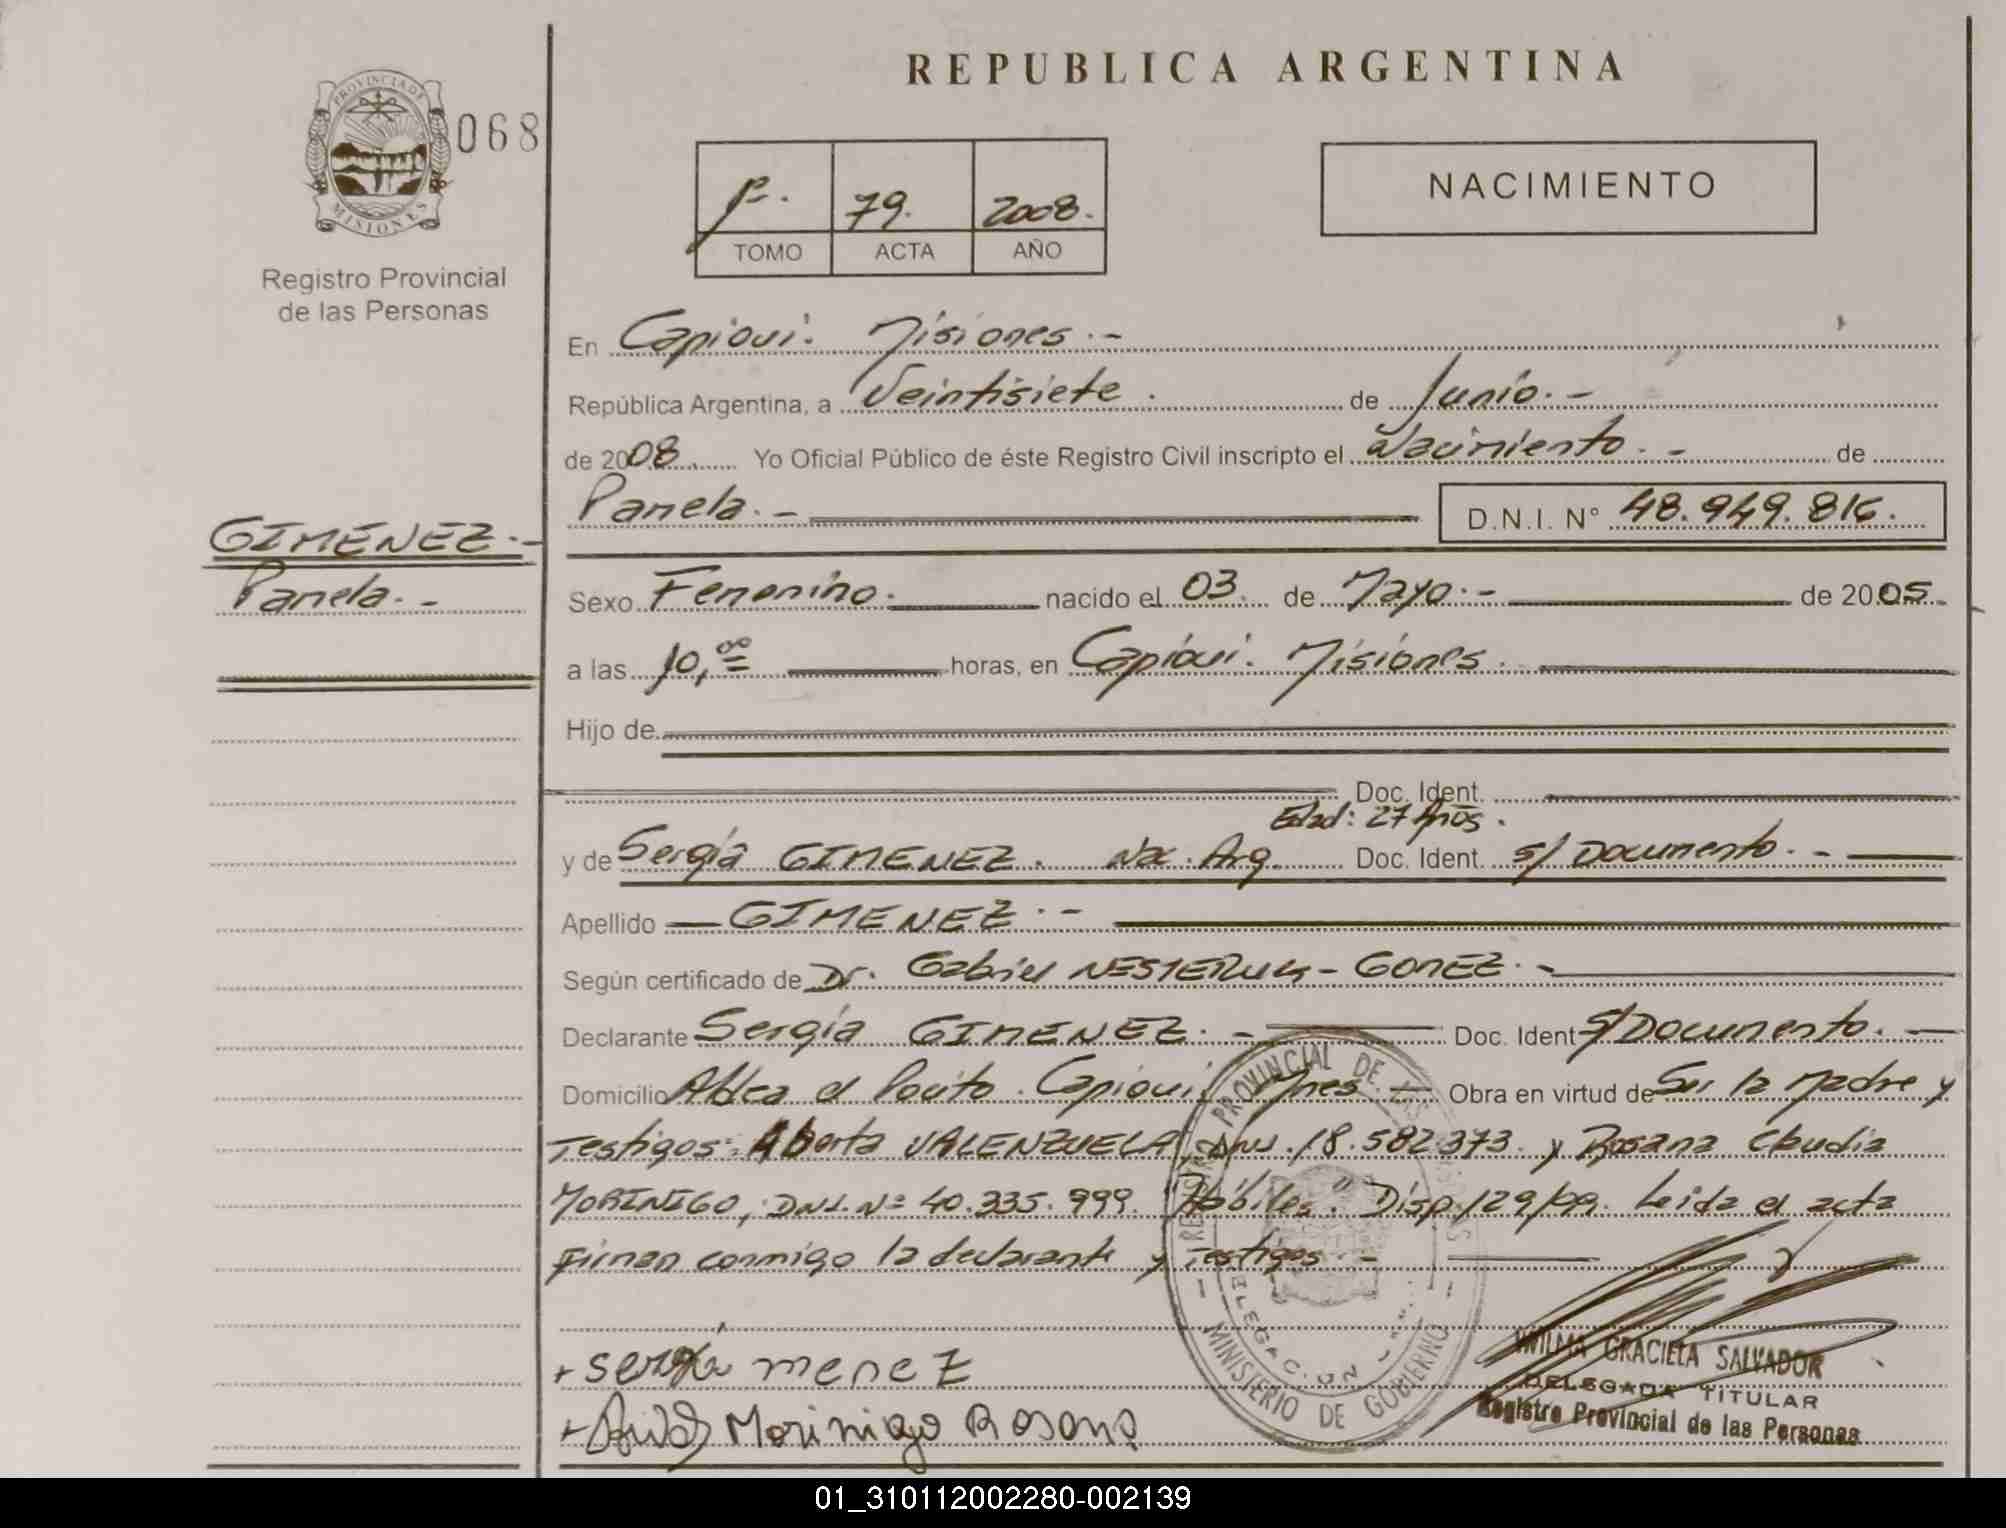 REPUBLICA ARGENTINA
PROVINCIA DE
MISIONES
068
1º. 79. 2008.
TOMO ACTA AÑO
NACIMIENTO
Registro Provincial
de las Personas
En Capioui. Misiones.-
República Argentina, a Veintisiete. de Junio.-
de 2008. Yo Oficial Público de éste Registro Civil inscripto el Nacimiento.- de
Pamela.- D.N.I. Nº 48.949.816.
GIMENEZ.-
Pamela.-
Sexo Femenino. nacido el 03. de Mayo.- de 2005.-
a las 10,00 horas, en Capioui. Misiones.
Hijo de
Doc. Ident.
Edad: 27 Años.
y de Sergia GIMENEZ. Nac. Arg. Doc. Ident. s/ Documento.-
Apellido GIMENEZ.-
Según certificado de Dr. Gabriel NESTERUK - GOMEZ.-
Declarante Sergia GIMENEZ.- Doc. Ident S/ Documento.-
Domicilio Aldea el Pocito. Capioui. Mnes - Obra en virtud de Ser la Madre y
Testigos: Alberta VALENZUELA, 18.582.373. y Rosana Claudia
MORINIGO, DNI. Nº 40.335.999. "Hábiles." Disp. 129/99. Leida el acta
Firman conmigo la declarante y Testigos.-
REGISTRO PROVINCIAL DE LAS PERSONAS
DELEGACION
MINISTERIO DE GOBIERNO
+ Sergia menez
+ Morinigo Rosana
WILMA GRACIELA SALVADOR
DELEGADA TITULAR
Registro Provincial de las Personas
01_310112002280-002139